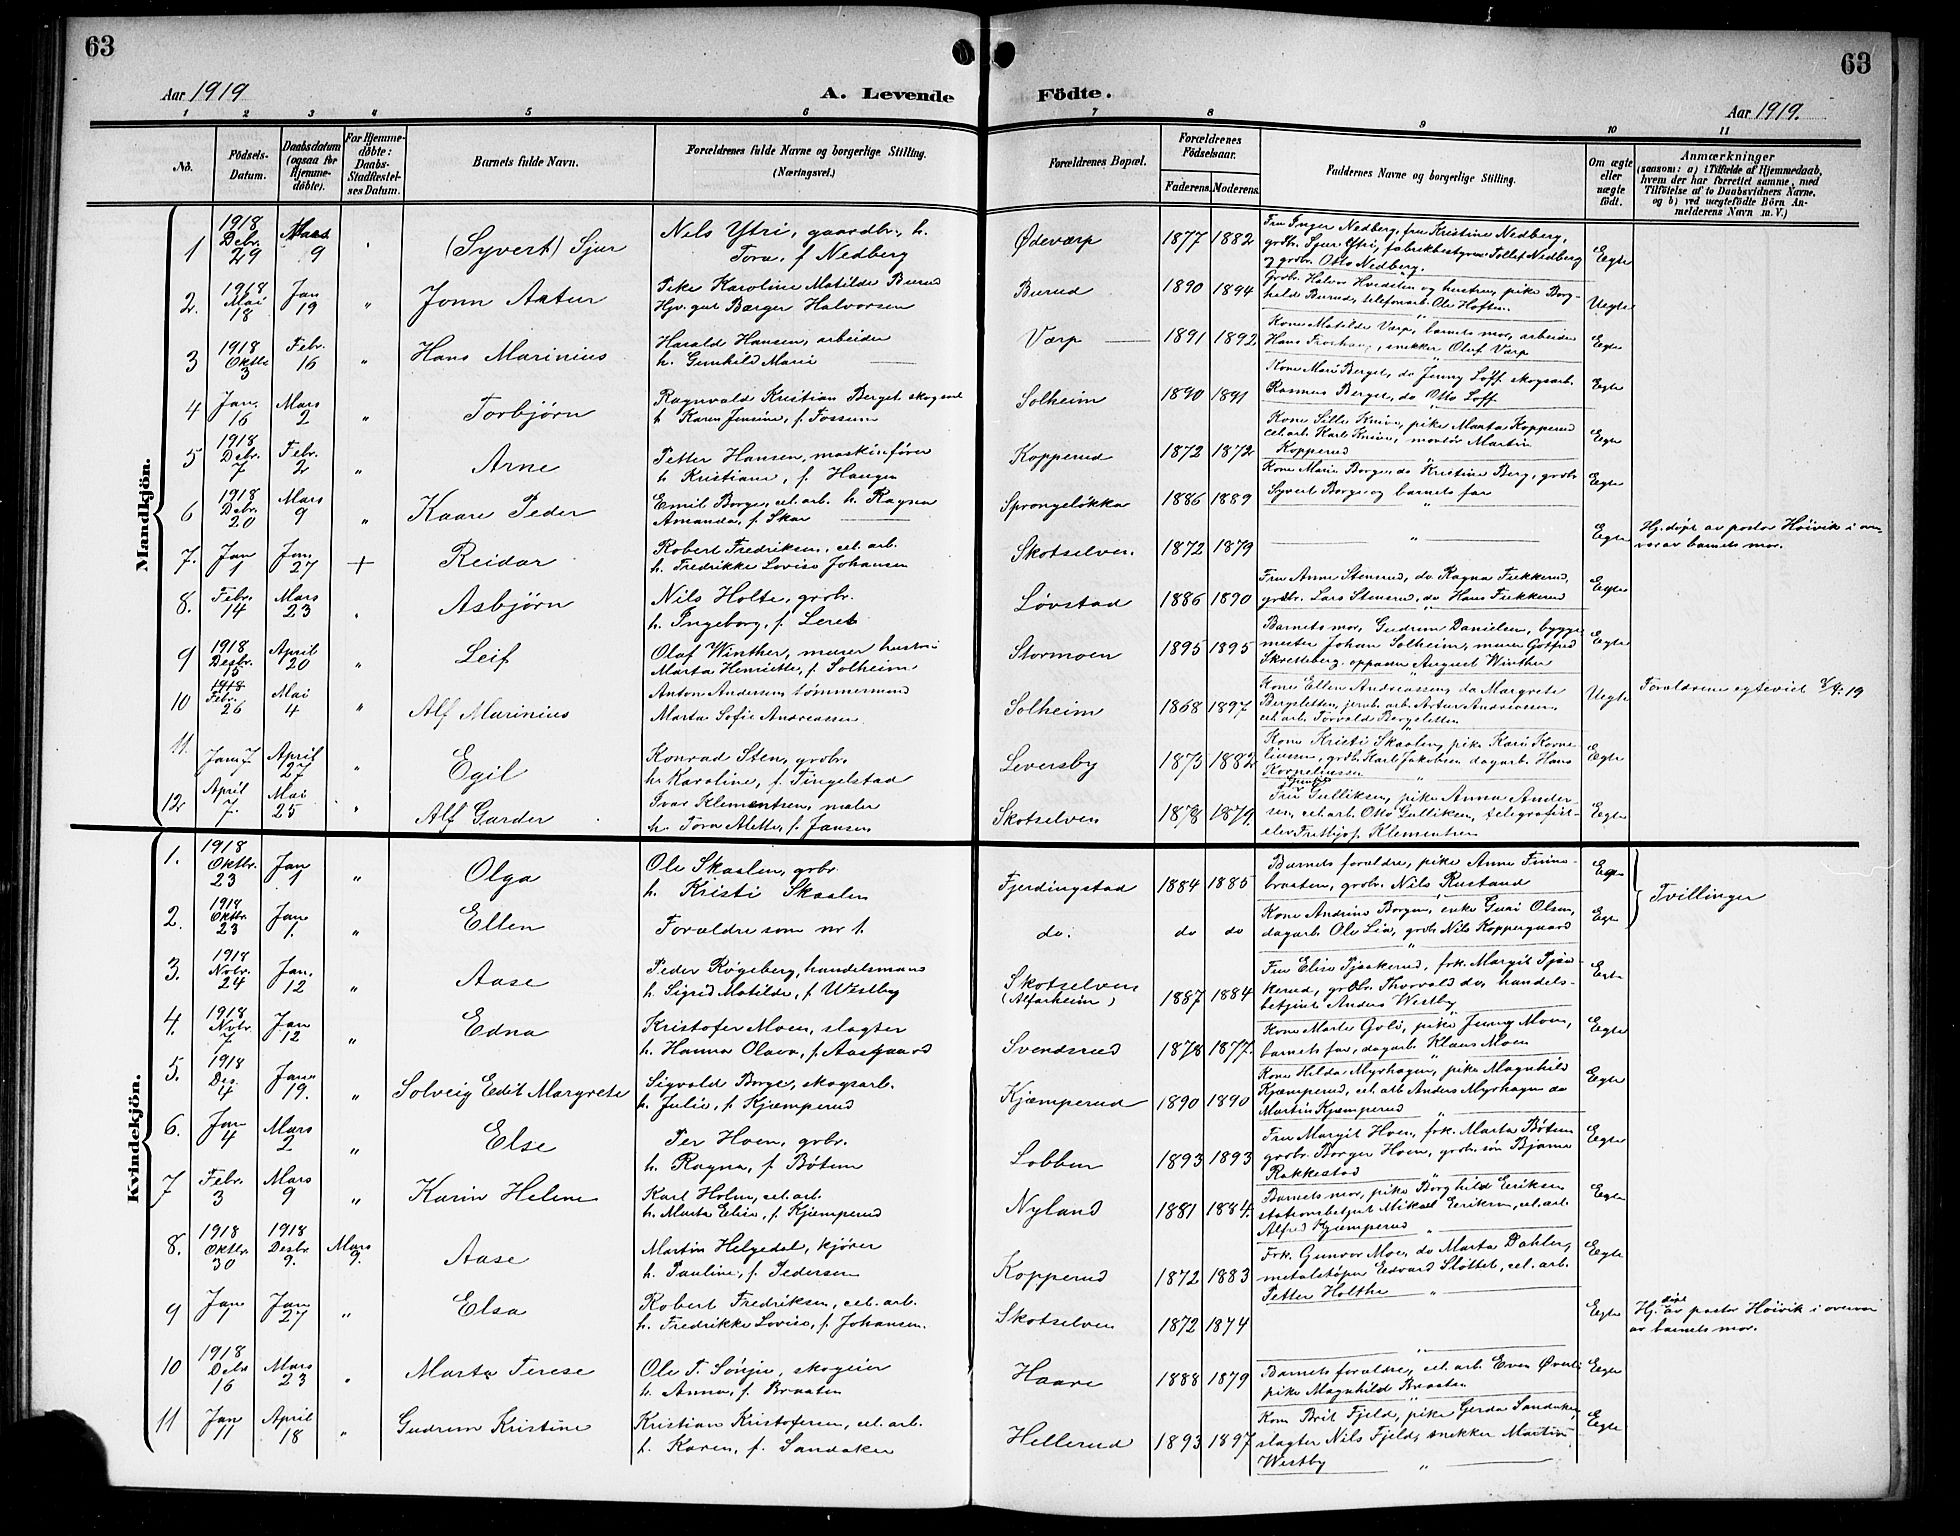 63
63
Aar 1919
A. Levende Födte.
Aar 1919.
1 2 3 4 5 6 7 8 9 10 11
No.
Födsels-Datum.
Daabsdatum (ogsaa for Hjemme-döbte).
For Hjemme-döbte: Daabs-Stadfæstel-ses Datum.
Barnets fulde Navn.
Forældrenes fulde Navne og borgerlige Stilling. (Næringsvei.)
Forældrenes Bopæl.
Forældrenes Födselsaar.
Faderens. Moderens.
Faddernes Navne og borgerlige Stilling.
Om ægte eller uægte födt.
Anmærkninger
(saasom: a) i Tilfælde af Hjemmedaab, hvem der har forrettet samme, med Tilföielse af to Daabsvidners Navne, og b) ved uægtefödte Börn Anmelderens Navn m. V.)
Mandkjön.
1 1918 Debr. 29 Mars 9 (Syvert) Sjur Nils Ytri, gaardbr., h. Tora, f. Nedberg Ødeværp 1877 1882 Fru Inger Nedberg, fru Kristine Nedberg, grdbr. Sjur Ytri, fabrikbestyrer Tollef Nedberg og grdbr. Otto Nedberg. Egte
2. 1918 Mai 18 Jan 19 " Jonn Artur Pike Karoline Matilde Burud Ugv. gut Børger Halvorsen Burud 1890 1894 Grdbr. Halvor Hvidsten og hustru, pike Borghild Burud, telefonarb. Ole Hoften Uegte
3 1918 Oktbr 3 Febr. 16 " Hans Marinius Harald Hansen, arbeider h. Gunhild Marie Værp 1891 1892 Kone Matilde Værp, barnets mor, arbeider Hans Froshaug, snekker Oluf Værp Egte
4 Jan. 16 Mars 2 " Torbjørn Ragnvald Kristian Berget, skogsarb h. Karen Jensine, f. Fossum Solheim 1890 1891 Kone Mari Berget, do Jenny Löff, skogsarb. Rasmus Berget, do Otto Löff Egte
5 1918 Debr. 7 Febr. 2 " Arne Petter Hansen, maskinfører h. Kristiane, f. Haugen Kopperud 1872 1872 Kone Sille Knive, pike Marta Kopperud cel.arb. Karl Knive, montør Martin Kopperud Egte
6 1918 Debr. 20 Mars 9 " Kaare Peder Emil Borge, cel. arb. h. Ragna Amanda, f. Skar Sprongeløkka 1886 1889 Kone Marie Borge, do Kristine Berg, grdbr. Syvert Borge og barnets far Egte
7. Jan 1 Jan 27 + Reidar Robert Fredriksen, cel. arb. h. Fredrikke Lovise Johansen Skotselven. 1872 1879 " Egte Hj. døpt av pastor Höivik i overvær av barnets mor.
8. Febr. 14 Mars 23 Asbjörn Nils Holte, grdbr. h. Ingeborg, f. Leret Løvstad 1886 1890 Fru Anne Stensrud, do Ragna Fekkerud, grdbr. Lars Stensrud, do Hans Fekkerud Egte
9 1918 Desbr. 15 April 20 " Leif Olaf Winther, murer hustru Marta Henriette, f. Solheim Stormoen 1895 1895 Barnets mor, Gudrun Danielsen, byggmester Johan Solheim, murer Gotfred Skretteberg, oppasser August Winther Egte
10 1918 Febr. 26 Mai 4 " Alf Marinius Anton Andersen, tømmermand Marta Sofie Andreassen. Solheim 1868 1897 Kone Ellen Andreassen, do Margrete Bergsletten, jernb. arb. Artur Andreassen, cel. arb. Torvald Bergsletten Uegte Forældrene egteviet 6/4 19
11. Jan 7 April 27 " Egil Konrad Sten, grdbr. h. Karoline, f. Tingelstad Leversby 1873 1882 Kone Kristi Skaalen, pike Kari Korneliussen, grdbr. Karl Jakobsen, dagarb. Hans Korneliussen Egte
12 April 7 Mai 25 " Alf Garder Ivar Klementsen, maler h. Tora Alette, f. Jansen Skotselven 1878 1879 Fru Gunda Gulliksen, pike Anna Andersen, cel. arb. Otto Gulliksen, telegrafist-elev Fritthjof Klementsen Egte
Kvindekjön.
1. 1918 Oktbr. 23 Jan 1 " Olga Ole Skaalen, grbr. h. Kristi Skaalen Fjerdingstad 1884 1885 Barnets forældre, pike Anne Finnebraaten, grdbr. Nils Rustand Egte Tvillinger
2. 1918 Oktbr. 23 Jan. 1. " Ellen Forældre som nr 1. do. do do Kone Andrine Borgen, enke Guri Olsen, dagarb. Ole Lia, grdb. Nils Koppergaard Egte
3. 1918 Novbr. 24 Jan. 12 " Aase Peder Røgeberg, handelsmand h. Sigrid Matilde, f. Westby Skotselven (Alfarheim) 1887 1884 Fru Elise Pjaakerud, frk. Margit Pjaakerud, grdbr. Thorvald do, handelsbetjent Anders Westby Egte
4. 1918 Novbr. 7 Jan 12 " Edna Kristofer Moen, slagter h. Hanna Olava, f. Aasgaard Svendsrud 1878 1877. Kone Marte Golö, pike Jenny Moen, barnets far, dagarb. Klaus Moen Egte
5. 1918 Des. 4 Jan. 19. " Solveig Edit Margrete Sigvald Borge, skogsarb. h. Julie, f. Kjæmperud Kjæmperud 1890 1890 Kone Hilda Myrhagen, pike Magnhild Kjæmperud, cel. arb Anders Myrhagen do Martin Kjæmperud Egte
6. Jan 4 Mars 2 " Else Per Hoen, grbr. h. Ragna, f. Bøtum Lobben 1893 1893 Fru Margit Hoen, frk. Marta Bøtum grdbr. Børger Hoen, grdbr. søn Bjarne Rakkestad Egte
7 Febr. 3 Mars 9 " Karin Helene Karl Holm, cel. arb. h. Marta Elise, f. Kjæmperud Nyland 1881 1884. Barnets mor, pike Borghild Eriksen stationsbetjent Mikael Eriksen, cel. arb. Alfred Kjæmperud Egte
8. 1918 Oktbr. 30 1918 Desbr. 9. Mars 9. Aase Martin Helgedal, kjører h. Pauline, f. Pedersen Kopperud 1872 1883 Frk. Gunvor Moe, do Marta Dahler, metalstøper Edvard Sløttet, cel. arb. Petter Holthe Egte
9 Jan 1 Jan 27 " Elsa Robert Fredriksen, cel. arb. h. Fredrikke Lovise, f. Johansen. Skotselven 1872 1874 Egte Hj. døpt av pastor Höivik i overvær av barnets mor.
10 1918 Debr 16 Mars 23 Marta Terese Ole T. Sönju, skogeier h. Anna, f. Braaten Haare 1888 1879 Barnets forældre, cel. arb. Even Øverli pike Magnhild Braaten Egte
11 Jan 11 April 18 " Gudrun Kristine Kristian Kristofersen, cel. arb. h. Karen, f. Sandaker Hellerud 1893 1897 Kone Brit Fjeld, pike Gerda Sandaker, slagter Nils Fjeld, snekker Martin Westby Egte